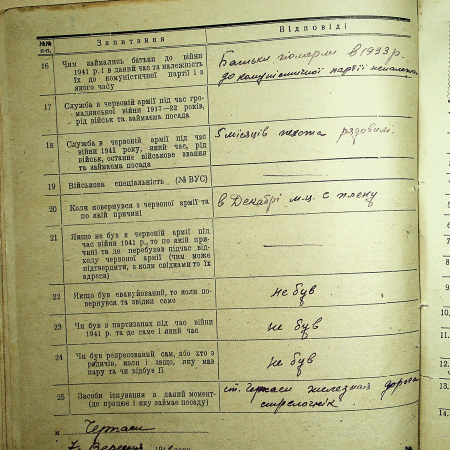 №№ п-п. Запитання Відповіді
16 Чим займались батьки до війни
1941 р. і в даний час та належність
їх до комуністичної партії і з
якого часу
Батьки померли в 1933 р.
до комуністичної партії неналежали
17 Служба в червоній армії під час гро-
мадянської війни 1917—22 років,
рід військ та займаєма посада
18 Служба в червоній армії під час
війни 1941 року, який час, рід
військ, останнє військове звання
та займаєма посада
5 місяців пехота рядовим.
19 Військова спеціальність (№ ВУС)
20 Коли повернувся з червоної армії та
по якій причині
в Декабрі м-ці с плену
21 Якщо не був в червоній армії під
час війни 1941 р., то по якій при-
чині та де перебував підчас від-
ходу червоної армії (чим може
підтвердити, а коли свідками то їх
адреса)
22 Якщо був евакуйований, то коли по-
вернувся та звідки саме
не був
23 Чи був в партизанах під час війни
1941 р. та де саме і який час
не був
24 Чи був репресований сам, або хто з
родичів, коли і защо, яку мав
кару та чи відбув її
не був
25 Засоби існування в даний момент
(де працює і яку займає посаду)
ст. Черкаси железная дорога
стрелочнік.
м Черкаси
7 Вересня
року
9.
10.
11.
12.
13.
14.